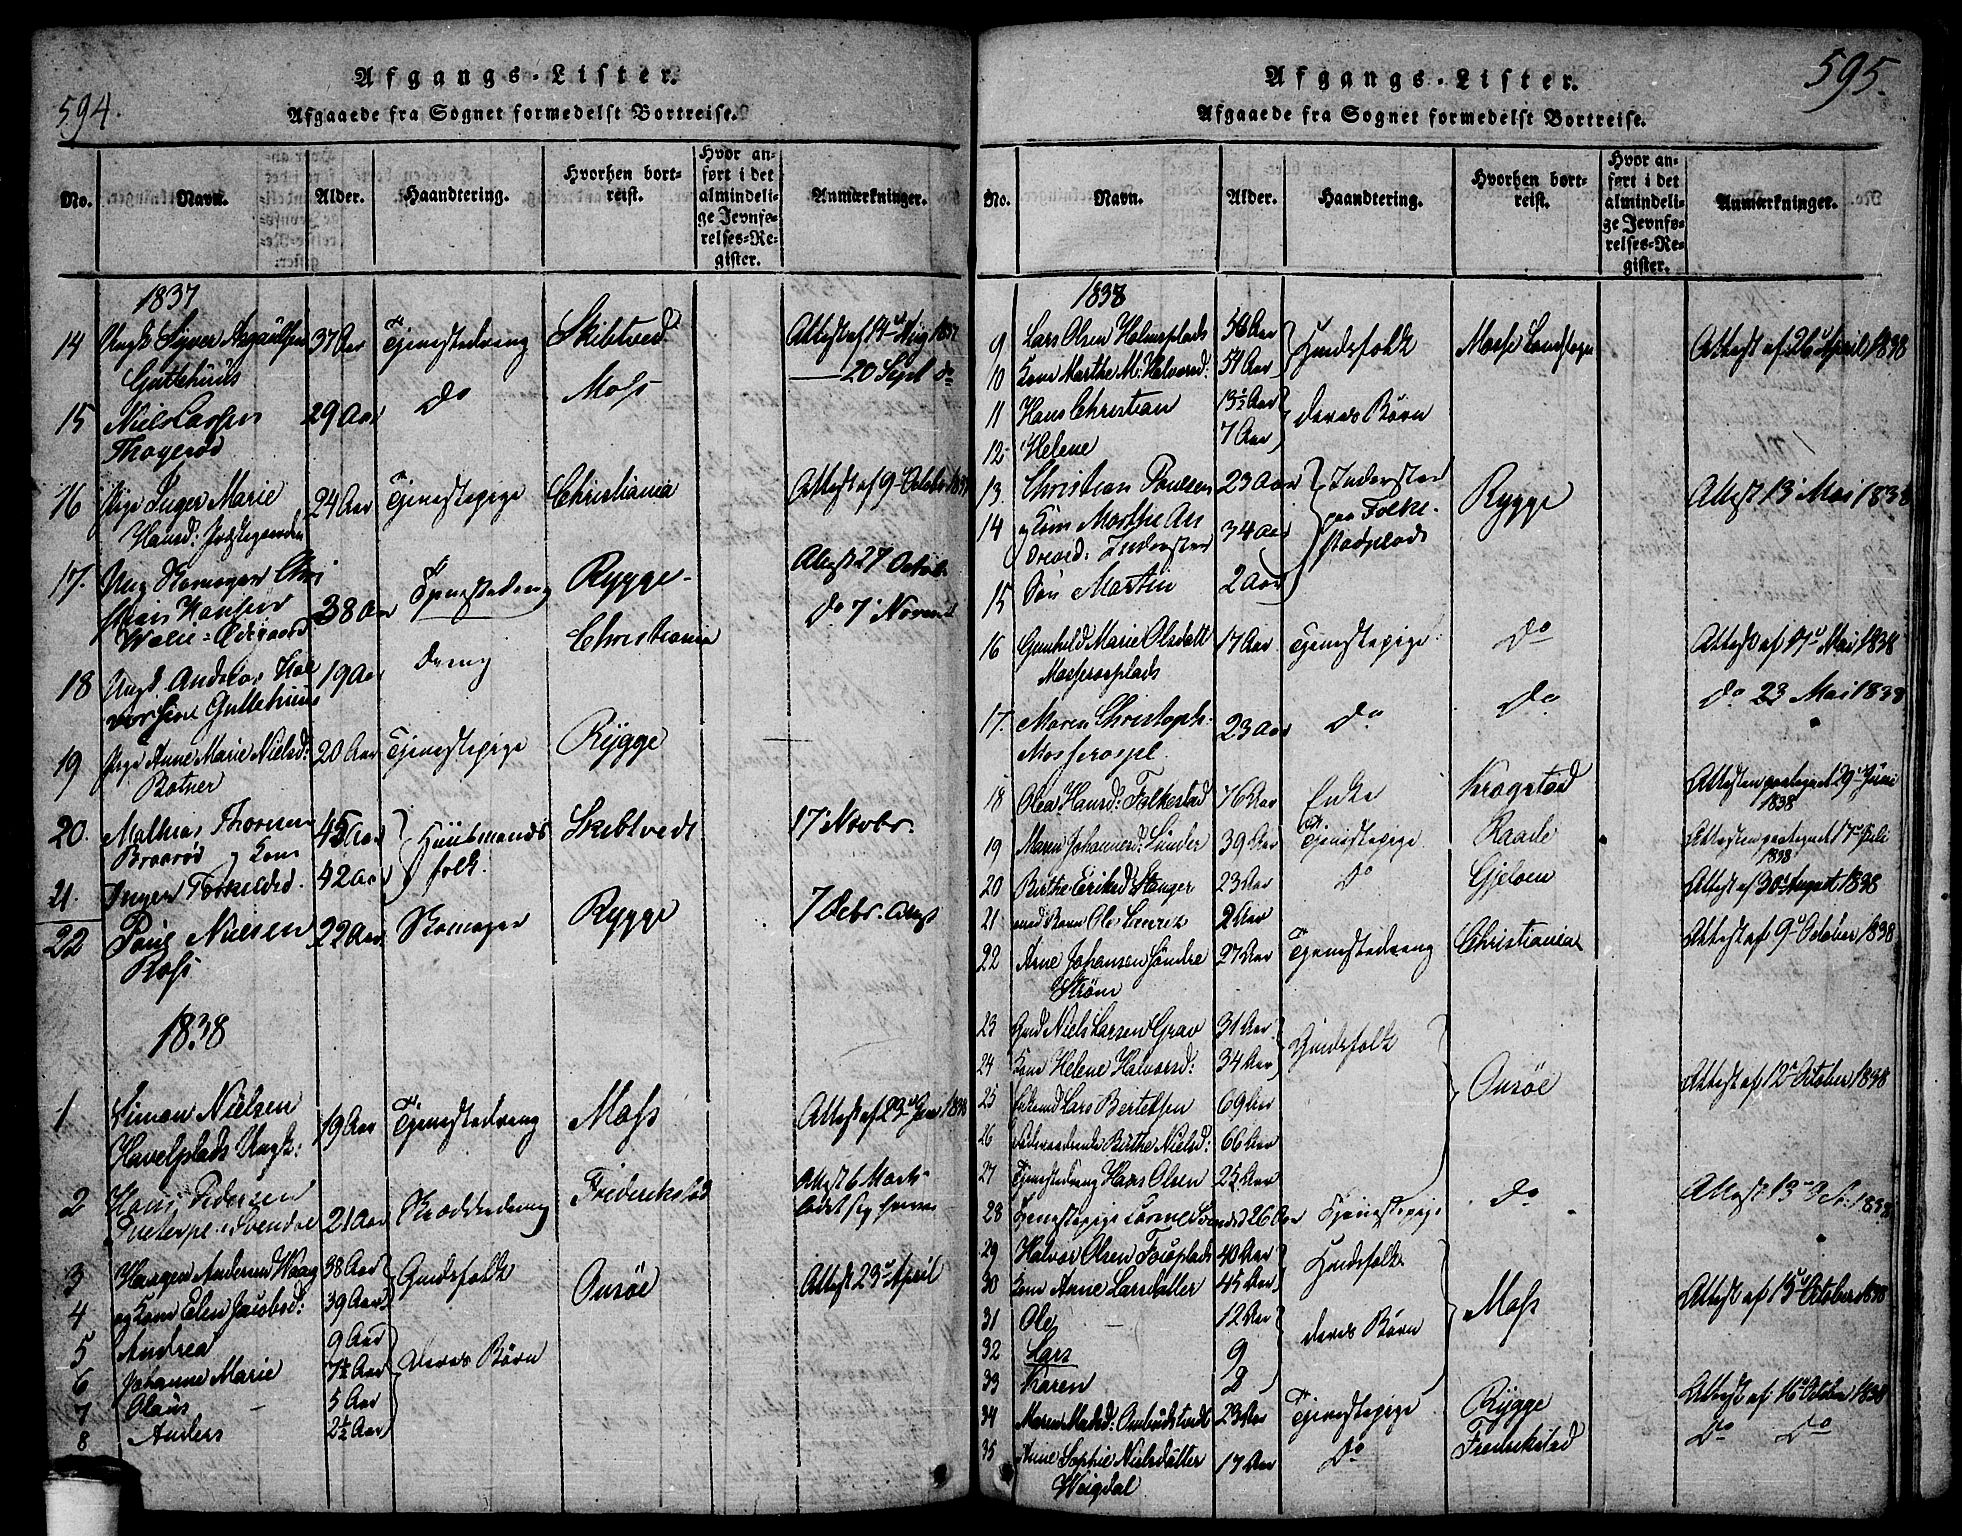 594.
Afgangs-Lister.
Afgaaede fra Sognet formedelst Bortreise.
No. Navn. Alder. Haandtering. Hvorhen bortreist. Hvor anført i det almindelige Jevnførelses-Register. Anmærkninger.
1837
14 Ungk Siver 37 Aar Tjenestedreng Skibtved Attest af 1837
Guttehuus
15 Niels Larsen 29 Aar Do Moss 20 Sept Do
Thogerød
16 Pige Inger Marie 24 Aar Tjenestepige Christiania Attest af 9 Octobr 1837
Hansd:
17. Ung Chri
stian Hansen 38 Aar Tjenestedreng Rygge Attest 27 Octob.
18 Ungk Andreas Hal 19 Aar dreng Christiania Do 7 Novem
vorsen Guttehuus
19 Pige Anne Marie Nielsd: 20 Aar Tjenestepige Rygge
Botner
20. Mathias Thorsen 45 Aar Huusmands Skibtvedt 17 Novbr.
Braarød og Kone folk.
21. Inger Torkildsd. 42 Aar
22 Poul Nielsen 22 Aar Skomager Rygge 7 Decbr. Attest
Ross
1838
1 Simon Nielsen 19 Aar Tjenestedreng Moss Attest af 23 Jan 1838
Havelplads Ungk:
2 Hans Pedersen 21 Aar Skræddedreng Frederikstad Attest 6 Marts
3 Haagen Andersen Waag 38 Aar Gaardsfolk Onsøe Attest 23 April
4 og Kone Elen Jacobsd: 39 Aar
5 Andrea 9 Aar deres Børn
6 Johanne Marie 7½ Aar
7 Olaus 5 Aar
8 Anders 2½ Aar
595.
Afgangs-Lister.
Afgaaede fra Sognet formedelst Bortreise.
No. Navn. Alder. Haandtering. Hvorhen bortreist. Hvor anført i det almindelige Jevnførelses-Register. Anmærkninger.
1838
9 Lars Olsen Holmsplads 56 Aar Huusfolk Mosse Landsogn Attest af 26 April 1838
10 Kone Marthe M: Halvorsd: 51 Aar
11 Hans Christian 13½ Aar deres Børn
12 Helene 7 Aar
13. Christian Poulsen 23 Aar Inderster Rygge Attest 13 Mai 1838
14 og Kone Marthe An 34 Aar paa Folke
dreasd: Inderster stadplads
15 Søn Martin 2 Aar
16 Gunhild Marie Olsdatt 17 Aar Tjenestepige Do Attest af 17 Mai 1838
Mosserosplads
17. Maren Christoph- 23 Aar Do Do Do 23 Mai 1838
Mosserospl.
18 Olea Hansd: Folkestad 76 Aar Enke Krogstad Attesten paategnet 29 Juni 1838
19 Maren Johannesd: Sunder 39 Aar Tjenestepige Raade Attesten paategnet 17 Juli 1838
20 Birthe Eriksd Stanger 23 Aar Do Gjeløen Attest af 30 August 1838
21 med Barn Ole 2 Aar
22 Arne Johansen Søndre 27 Aar Tjenestedreng Christiania Attest af 9 October 1838
Strøm
23 Gmd Niels Larsen Grav 31 Aar Gaardsfolk Onsøe Attest af 12 October 1838
24 Kone Helene Halvorsd: 34 Aar
25 Lars Bertelsen 69 Aar
26 Birthe Nielsd: 66 Aar
27 Tjenestedreng Hans Olsen 25 Aar
28 Tjenestepige 26 Aar Tjenestepige Do Attest 13 Oct. 1838
29 Halvor Olsen 40 Aar Huusfolk Moss Attest af 15 October 1838
30 Kone Anne Larsdatter 45 Aar
31 Ole 12 Aar deres Børn
32 Lars 9
33 Karen 2
34 Maren Madsd: Ombudstvedt 23 Aar Tjenestepige Rygge Attest af 16 October 1838
35 Anne Sophie Nielsdatter 17 Aar Do Frederikstad Do Do
Weigdal